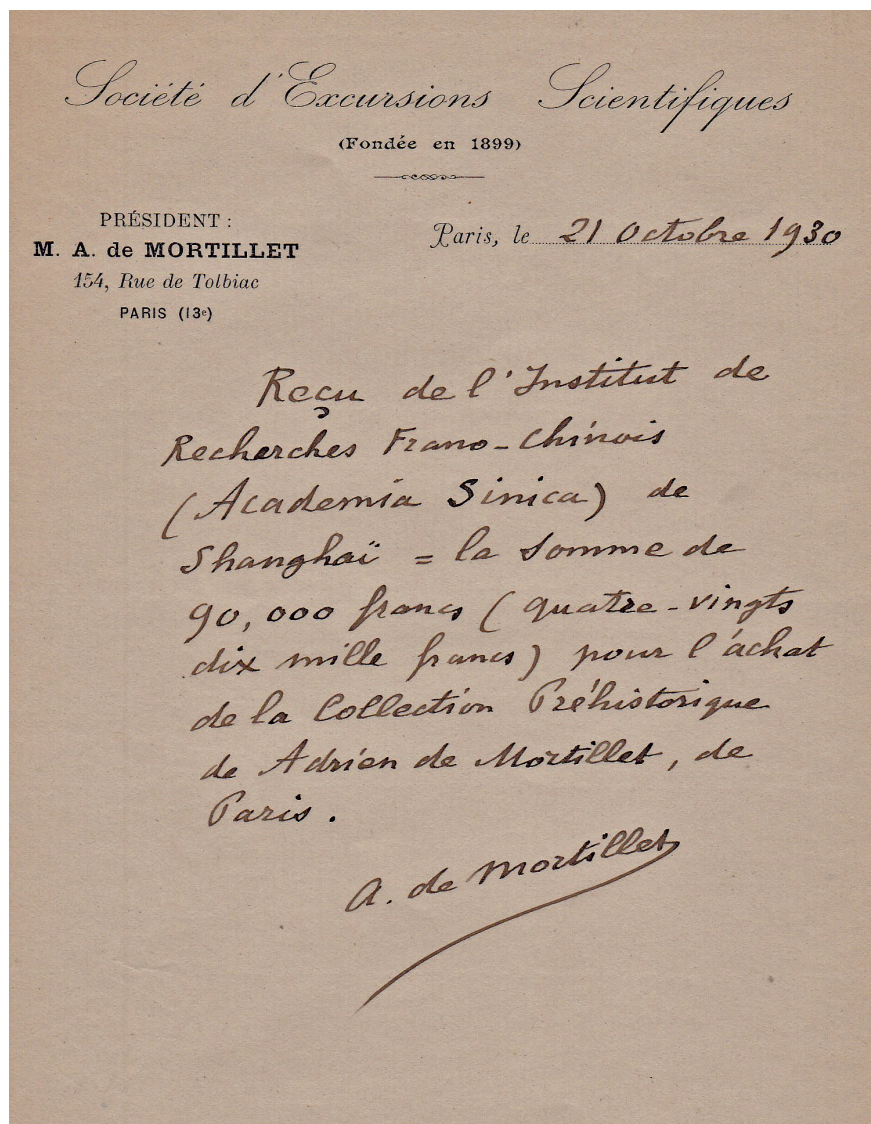 Société d'Excursions Scientifiques
(Fondée en 1899)
PRÉSIDENT :
M. A. de MORTILLET
154, Rue de Tolbiac
PARIS (13e)
Paris, le 21 Octobre 1930
Reçu de l'Institut de
Recherches Frano-Chinois
(Academia Sinica) de
Shanghaï = la somme de
90,000 francs (quatre-vingts
dix mille francs) pour l'áchat
de la Collection Préhistorique
de Adrien de Mortillet, de
Paris.
A. de Mortillet